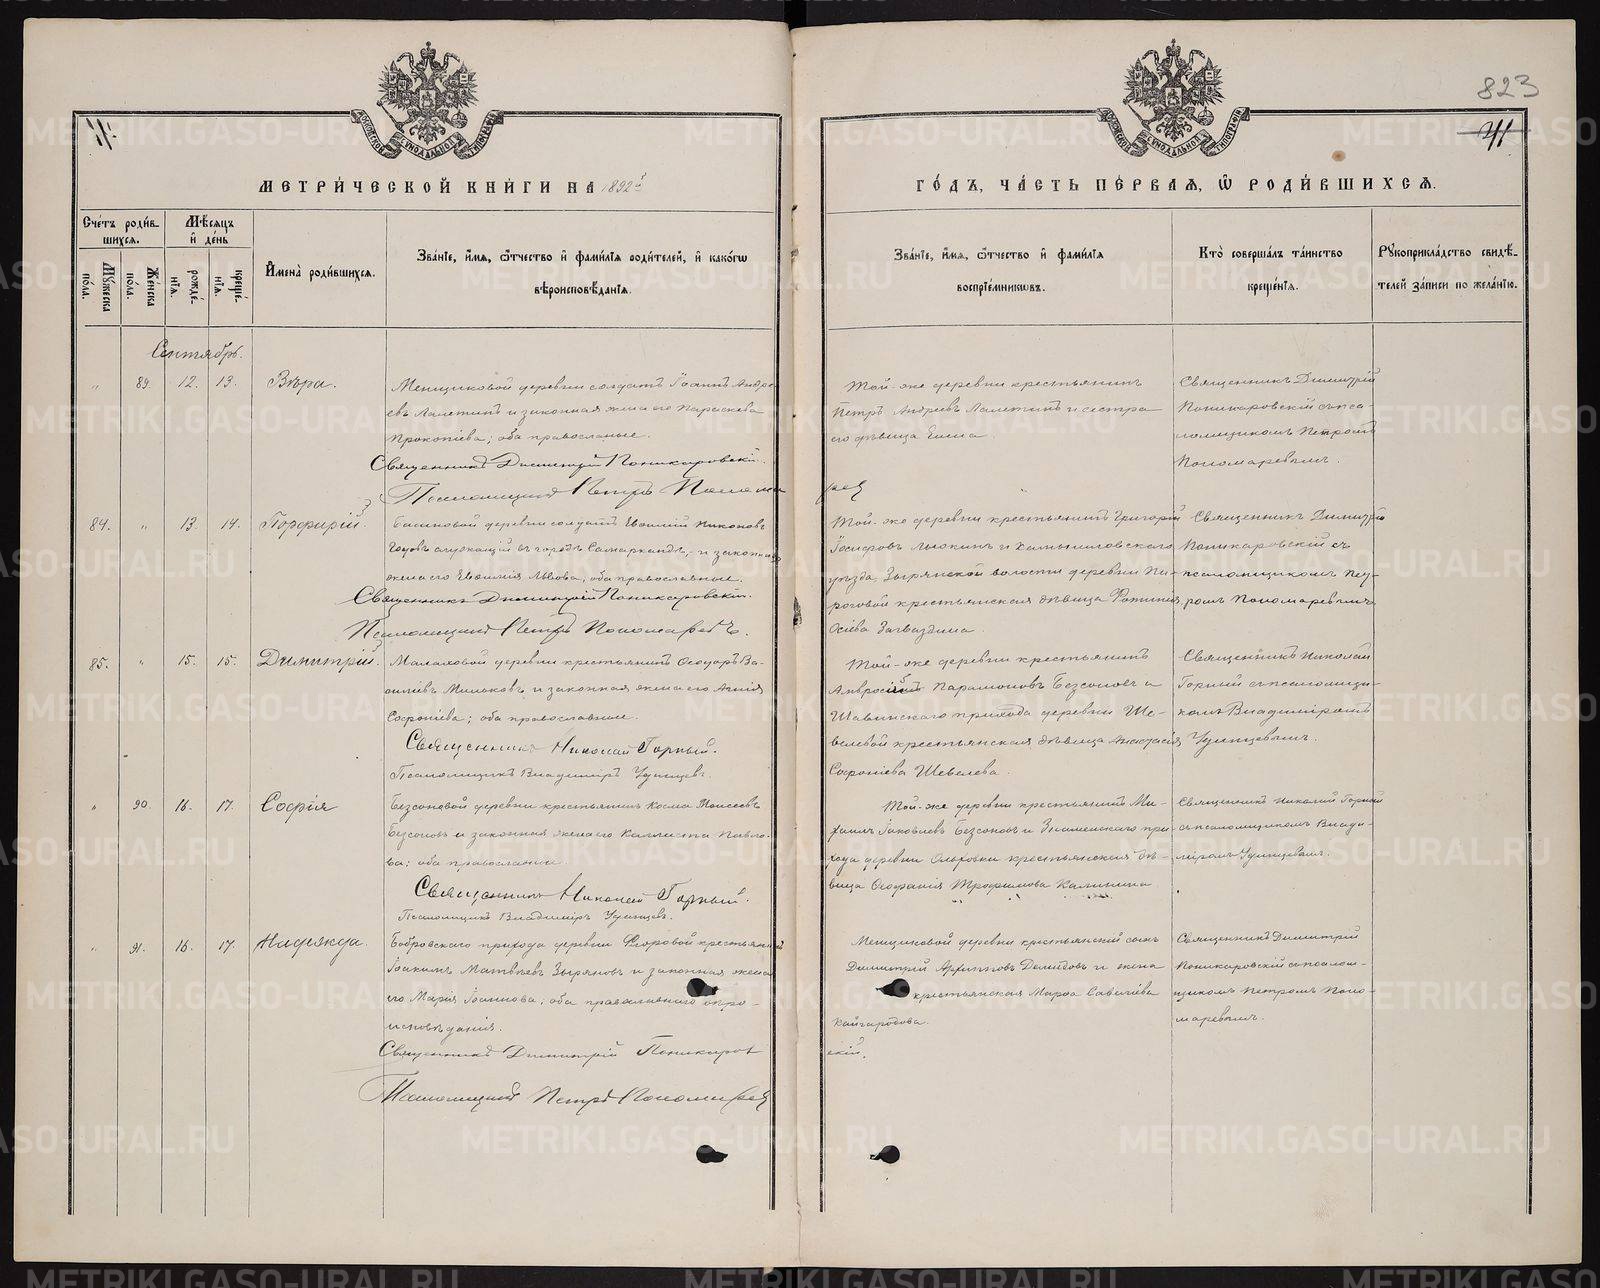 823
41
МЕТРИ́ЧЕСКОЙ КНИ́ГИ НА 1892й
ГО́ДЪ, ЧА́СТЬ ПЕ́РВАЯ, Ѡ РОДИ́ВШИХСЯ.
Сче́тъ роди́в-
шихся.
Мѣ́сяцъ
и҆ де́нь
Мꙋ́жеска по́ла.
Же́нска по́ла.
рожде́-нїя.
креще́-нїя.
И҆мена̀ роди́вшихся.
Зва́нїе, и҆́мя, ѻ҆́тчество и҆ фами́лїя роди́телей, и҆ како́гѡ
вѣроисповѣ́данїя.
Зва́нїе, и҆́мя, ѻ҆́тчество и҆ фами́лїя
воспрїе́мникѡвъ.
Кто̀ соверша́лъ та́инство
креще́нїя.
Рꙋкоприкла́дство свидѣ́-
телей за́писи по жела́нїю.
Сентябрь.
" 89. 12. 13. Вѣра.
Менщиковой деревни солдатъ Іоаннъ Андре-
евъ Лалетинъ и законная жена его Параскева
Прокопіева; оба православные.
Священникъ Димитрій Поникаровскій.
Псаломщикъ Петръ Пономаревъ
Той-же деревни крестьянинъ
Петръ Андреевъ Лалетинъ и сестра
его дѣвица Елена.
Священникъ Димитрій
Поникаровскій съ пса-
ломщикомъ Петромъ
Пономаревымъ.
84. " 13. 14. Порфирій.
деревни солдатъ Евѳимій Никоновъ
служащій въ городѣ Самаркандѣ, и законная
жена его Евѳимія Львова; оба православные.
Священникъ Димитрій Поникаровскій.
Псаломщикъ Петръ Пономаревъ.
Той-же деревни крестьянинъ Григорій
Іосифовъ и Камышловскаго
уѣзда, Зырянской волости деревни Пи-
роговой крестьянская дѣвица
Священникъ Димитрій
Поникаровскій съ
псаломщикомъ Пет-
ромъ Пономаревымъ
85. " 15. 15. Димитрій.
Малаховой деревни крестьянинъ Ѳеодоръ Ва-
силіевъ Мильковъ и законная жена его Агнія
Софроніева; оба православные.
Священникъ Николай Горный.
Псаломщикъ Владиміръ Удинцевъ.
Той-же деревни крестьянинъ
Амвросій Парамоновъ Безсоновъ и
Шавинскаго прихода деревни Ше-
велевой крестьянская дѣвица Анастасія
Софроніева Шевелева.
Священникъ Николай
Горный съ псаломщи-
комъ Владиміромъ
Удинцевымъ.
" 90. 16. 17. Софія
Безсоновой деревни крестьянинъ Косма Моисеевъ
Безсоновъ и законная жена его Каллиста Павло-
ва; оба православные.
Священникъ Николай Горный.
Псаломщикъ Владиміръ Удинцевъ.
Той-же деревни крестьянинъ Ми-
хаилъ Іаковлевъ Безсоновъ и Знаменскаго при-
хода деревни крестьянская дѣ-
вица Ѳеофанія Трофимова Калинина
Священникъ Николай Горный
съ псаломщикомъ Влади-
міромъ Удинцевымъ.
" 91. 16. 17. Надежда.
Бобровскаго прихода деревни крестьянинъ
Іоакимъ Матвѣевъ Зыряновъ и законная жена
его Марія Іоаннова; оба православнаго вѣро-
исповѣданія.
Священникъ Димитрій Поникаров
скій.
Псаломщикъ Петръ Пономаревъ
Менщиковой деревни крестьянскій сынъ
Димитрій Архиповъ Демидовъ и жена
крестьянская Марѳа Савеліева
Кайгародова.
Священникъ Димитрій
Поникаровскій съ псалом-
щикомъ Петромъ Поно-
маревымъ.
METRIKI.GASO-URAL.RU